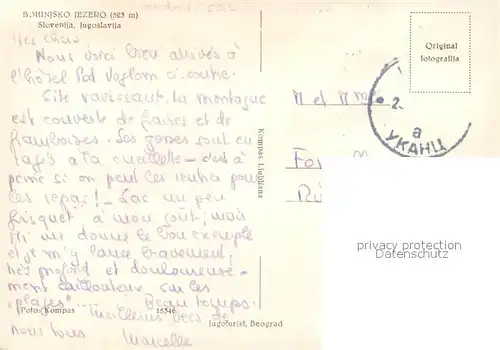 BOHINJSKO JEZERO (523 m)
Slovenija, Jugoslavija
Original
fotografija
Mes chers
Nous voici bien arrivés à
l'hôtel Pod Voglom ci-contre.
Site ravissant. la montagne
est couverte de fraises et de
framboises. Les gosses sont en
à la cueillette - c'est à
peine si on peut les rentrer pour
les repas! - Lac un peu
frisquet à mon goût; mais
Mi me donne le bon exemple
et je m'y lance bravement,
très profond et douloureuse-
ment caillouteux sur les
"plages"..... Beau temps.
Meilleurs becs de
nous tous Marcelle
M et Mme
2.
a
УКАНЦ
Kompas Ljubljana
Foto: Kompas 15346
Jugoturist, Beograd
privacy protection
Datenschutz